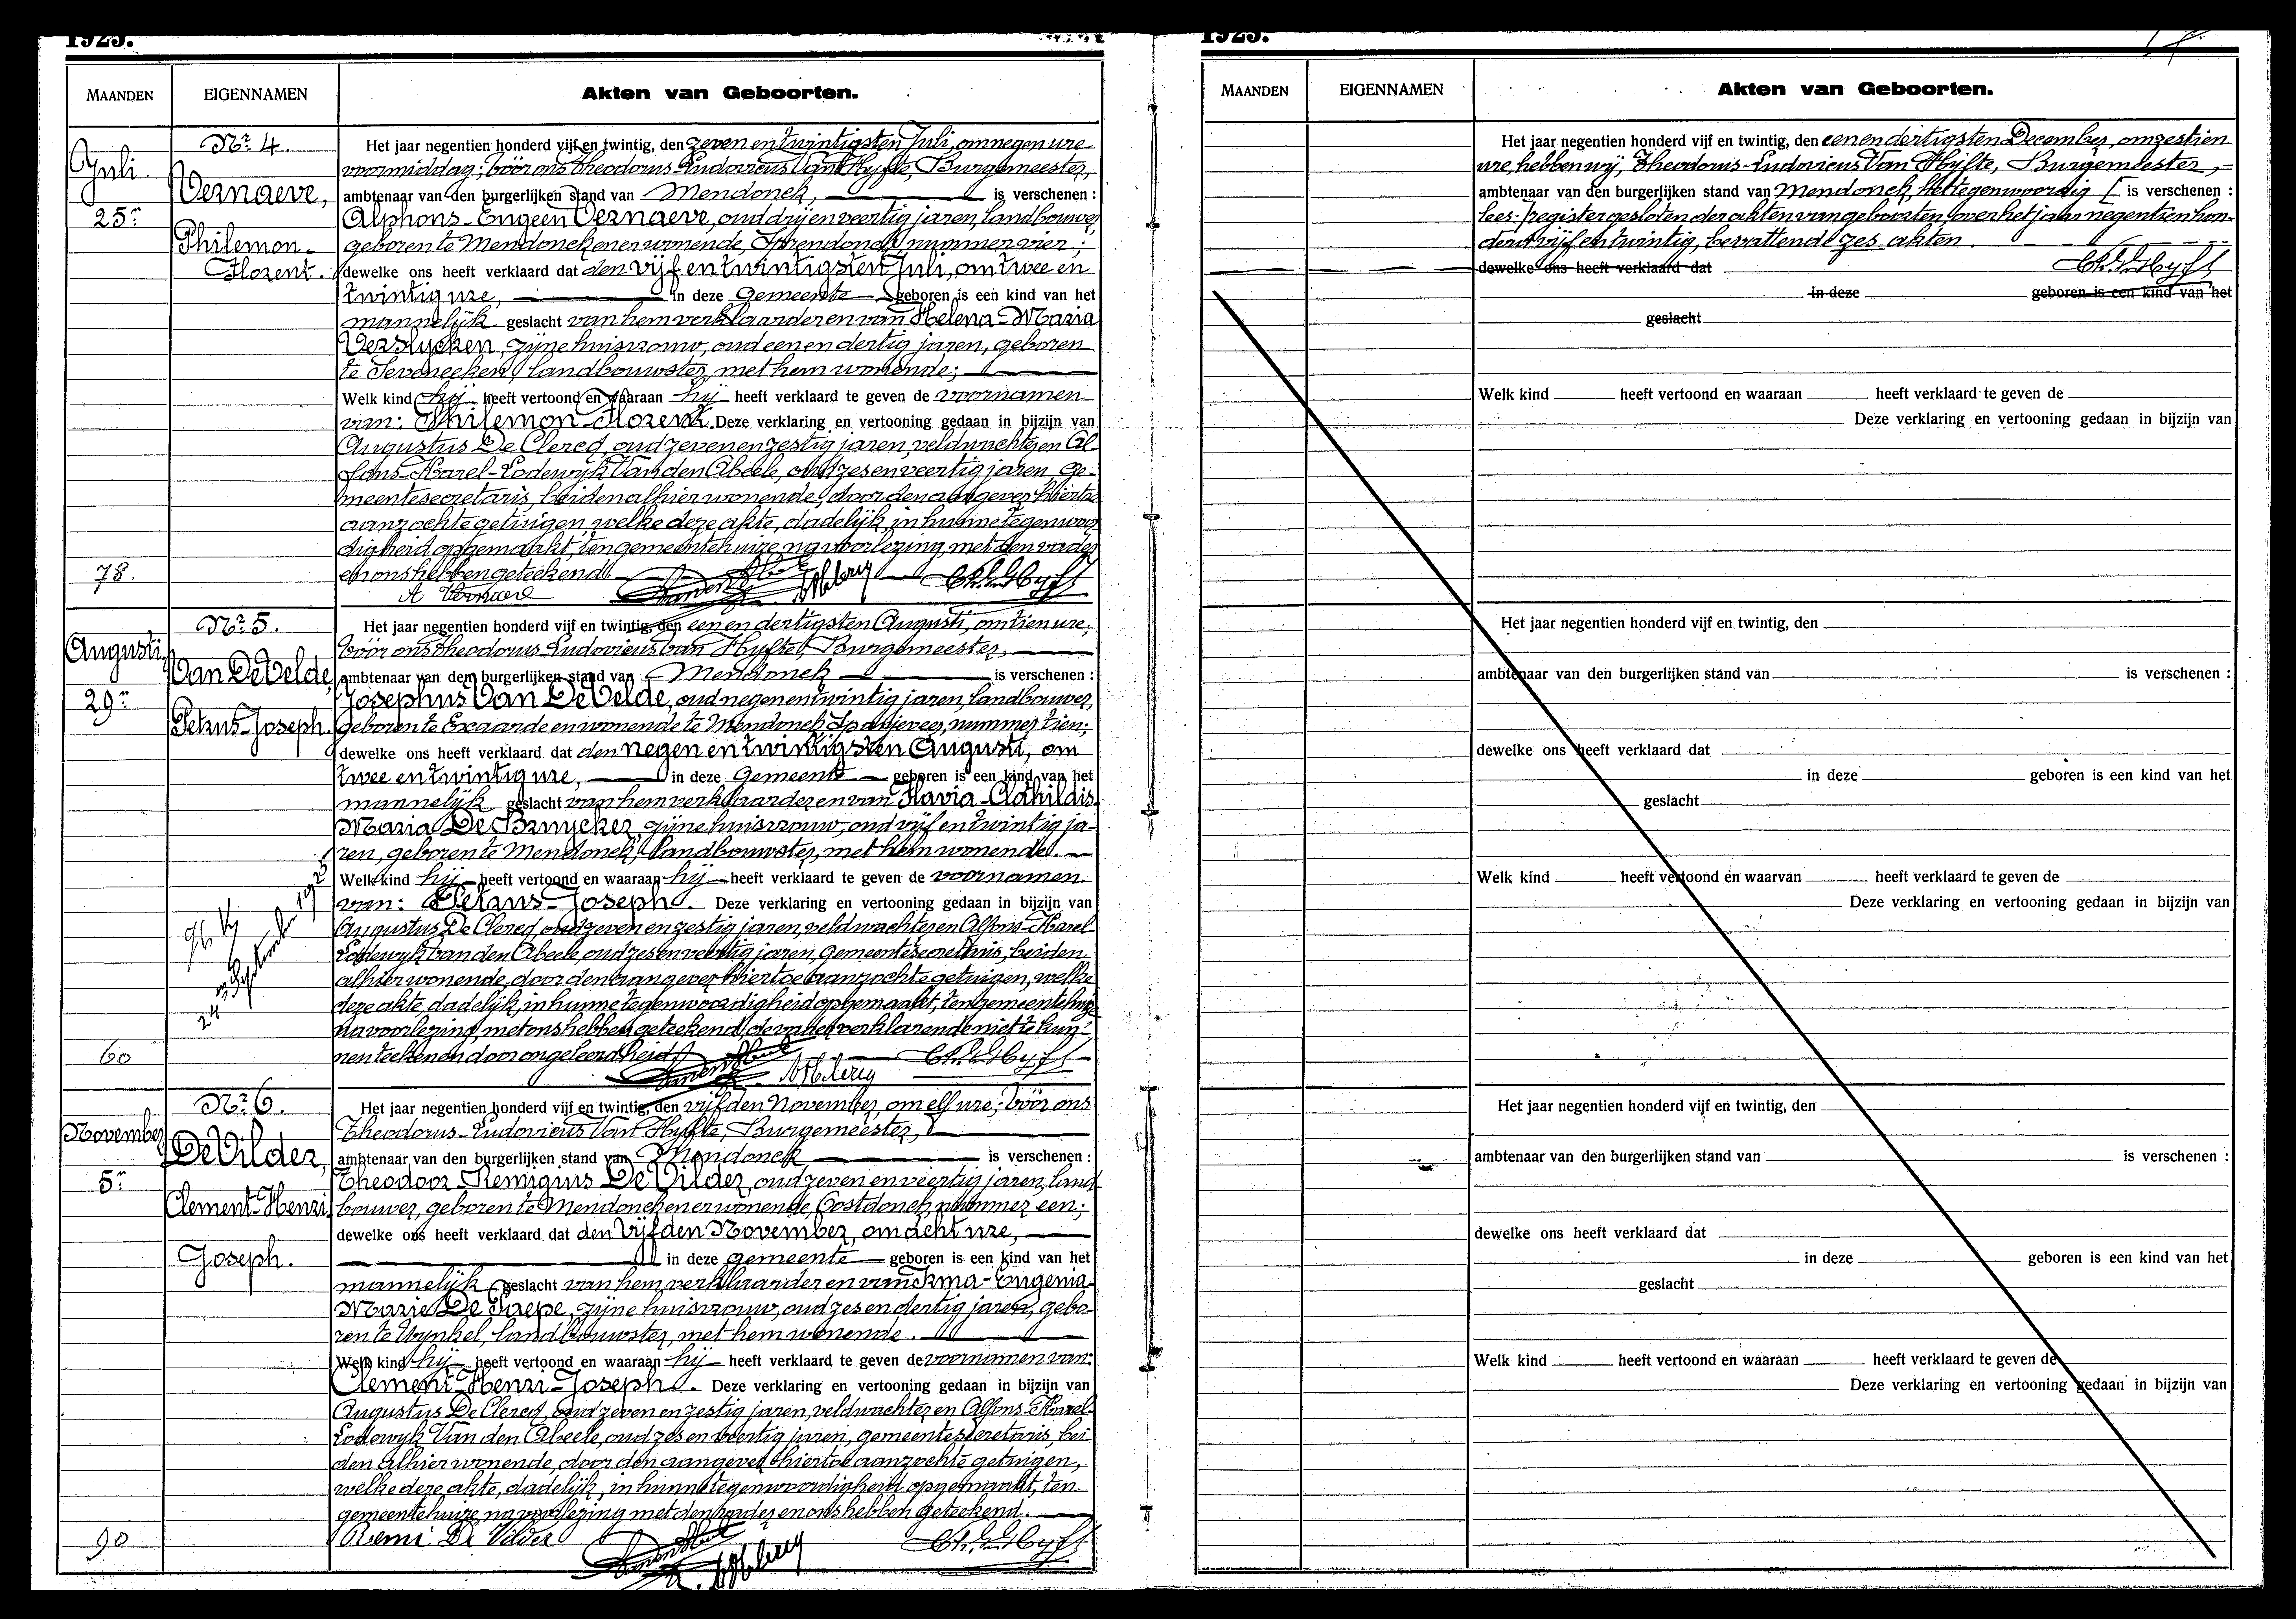 1925.
MAANDEN
EIGENNAMEN
Akten van Geboorten.
Juli
25n
78.
Nr 4.
Vernaeve,
Philemon-
Florent.
Het jaar negentien honderd vijf en twintig, den zeven en twintigsten Juli, om negen ure
voormiddag; vóór ons Theodorus Ludovicus Van Hyfte, Burgemeester,
ambtenaar van den burgerlijken stand van Mendonck, is verschenen :
Alphons-Eugeen Vernaeve, oud drij en veertig jaren, landbouwer,
geboren te Mendonck en er wonende, Sprendonck, nummer vier;
dewelke ons heeft verklaard dat den vijf en twintigsten Juli, om twee en
twintig ure, in deze gemeente geboren is een kind van het
mannelijk geslacht van hem verklaarder en van Helena-Maria
Verslycken, zijne huisvrouw, oud een en dertig jaren, geboren
te Seveneeken, landbouwster, met hem wonende;
Welk kind hij heeft vertoond en waaraan hij heeft verklaard te geven de voornamen
van: Philemon-Florent. Deze verklaring en vertooning gedaan in bijzijn van
Augustus De Clercq, oud zeven en zestig jaren, veldwachter en Al-
fons-Karel-Lodewyk Van den Abeele, oud zes en veertig jaren, ge-
meentesecretaris, beiden alhier wonende, door den aangever hiertoe
aanzochte getuigen, welke deze akte, dadelijk, in hunne tegenwoor-
digheid opgemaakt, ten gemeentehuize, na voorlezing, met den vader
en ons hebben geteekend.
A Vernaeve
Augusti
29n
60
Nr 5.
Van De Velde,
Petrus-Joseph.
24 september 1925
Het jaar negentien honderd vijf en twintig, den een en dertigsten Augusti, om tien ure;
vóór ons Theodorus Ludovicus Van Hyfte, Burgemeester,
ambtenaar van den burgerlijken stand van Mendonck is verschenen :
Josephus Van De Velde, oud negen en twintig jaren, landbouwer,
geboren te Exaarde en wonende te Mendonck, Spanjeveer, nummer tien;
dewelke ons heeft verklaard dat den negen en twintigsten Augusti, om
twee en twintig ure, in deze gemeente geboren is een kind van het
mannelijk geslacht van hem verklaarder en van Flavia-Clothildis
Maria De Bruycker, zijne huisvrouw, oud vijf en twintig ja-
ren, geboren te Mendonck, landbouwster, met hem wonende.
Welk kind hij heeft vertoond en waaraan hij heeft verklaard te geven de voornamen
van: Petrus-Joseph. Deze verklaring en vertooning gedaan in bijzijn van
Augustus De Clercq, oud zeven en zestig jaren, veldwachter en Alfons-Karel-
Lodewyk Van den Abeele, oud zes en veertig jaren, gemeentesecretaris, beiden
alhier wonende, door den aangever hiertoe aanzochte getuigen, welke
deze akte, dadelijk, in hunne tegenwoordigheid opgemaakt, ten gemeentehuize
na voorlezing, met ons hebben geteekend, de vader verklarende niet te kun-
nen teekenen door ongeleerdheid.
November
5n
90
Nr 6.
De Vilder,
Clement-Henri
Joseph.
Het jaar negentien honderd vijf en twintig, den vijfden November, om elf ure; vóór ons
Theodorus-Ludovicus Van Hyfte, Burgemeester,
ambtenaar van den burgerlijken stand van Mendonck is verschenen :
Theodoor-Remigius De Vilder, oud zeven en veertig jaren, land-
bouwer, geboren te Mendonck en er wonende, Oostdonck, nummer een;
dewelke ons heeft verklaard dat den vijfden November, om acht ure,
in deze gemeente geboren is een kind van het
mannelijk geslacht van hem verklaarder en van Irma-Eugenia-
Marie De Paepe, zijne huisvrouw, oud zes en dertig jaren, gebo-
ren te Wynkel, landbouwster, met hem wonende.
Welk kind hij heeft vertoond en waaraan hij heeft verklaard te geven de voornamen van:
Clement-Henri-Joseph. Deze verklaring en vertooning gedaan in bijzijn van
Augustus De Clercq, oud zeven en zestig jaren, veldwachter en Alfons-Karel-
Lodewyk Van den Abeele, oud zes en veertig jaren, gemeentesecretaris, bei-
den alhier wonende, door den aangever hiertoe aanzochte getuigen,
welke deze akte, dadelijk, in hunne tegenwoordigheid opgemaakt, ten
gemeentehuize, na voorlezing met den vader en ons hebben geteekend.
Remi De Vilder
1925.
MAANDEN
EIGENNAMEN
Akten van Geboorten.
Het jaar negentien honderd vijf en twintig, den een en dertigsten December, om zestien
ure, hebben wij, Theodorus-Ludovicus Van Hyfte, Burgemeester,
ambtenaar van den burgerlijken stand van Mendonck, het tegenwoordig [ is verschenen :
lees: ] register gesloten der akten van geboorten over het jaar negentien hon-
derd vijf en twintig, bevattende zes akten.
dewelke ons heeft verklaard dat
in deze geboren is een kind van het
geslacht
Welk kind heeft vertoond en waaraan heeft verklaard te geven de
Deze verklaring en vertooning gedaan in bijzijn van
Het jaar negentien honderd vijf en twintig, den
ambtenaar van den burgerlijken stand van is verschenen :
dewelke ons heeft verklaard dat
in deze geboren is een kind van het
geslacht
Welk kind heeft vertoond en waarvan heeft verklaard te geven de
Deze verklaring en vertooning gedaan in bijzijn van
Het jaar negentien honderd vijf en twintig, den
ambtenaar van den burgerlijken stand van is verschenen :
dewelke ons heeft verklaard dat
in deze geboren is een kind van het
geslacht
Welk kind heeft vertoond en waaraan heeft verklaard te geven de
Deze verklaring en vertooning gedaan in bijzijn van